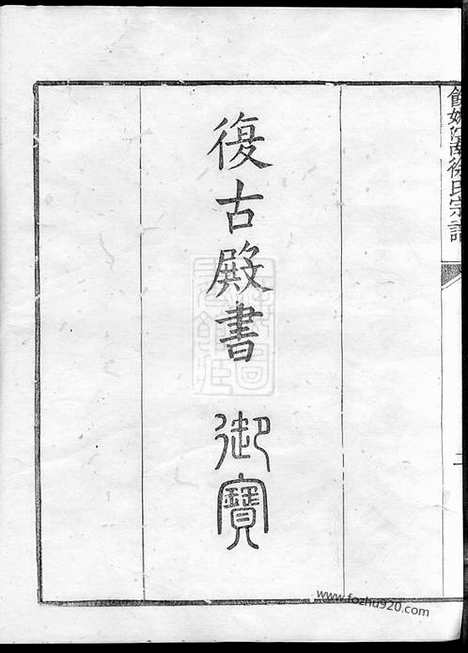 徐氏宗譜
二
復古殿書
御寶
www.fozhu920.com